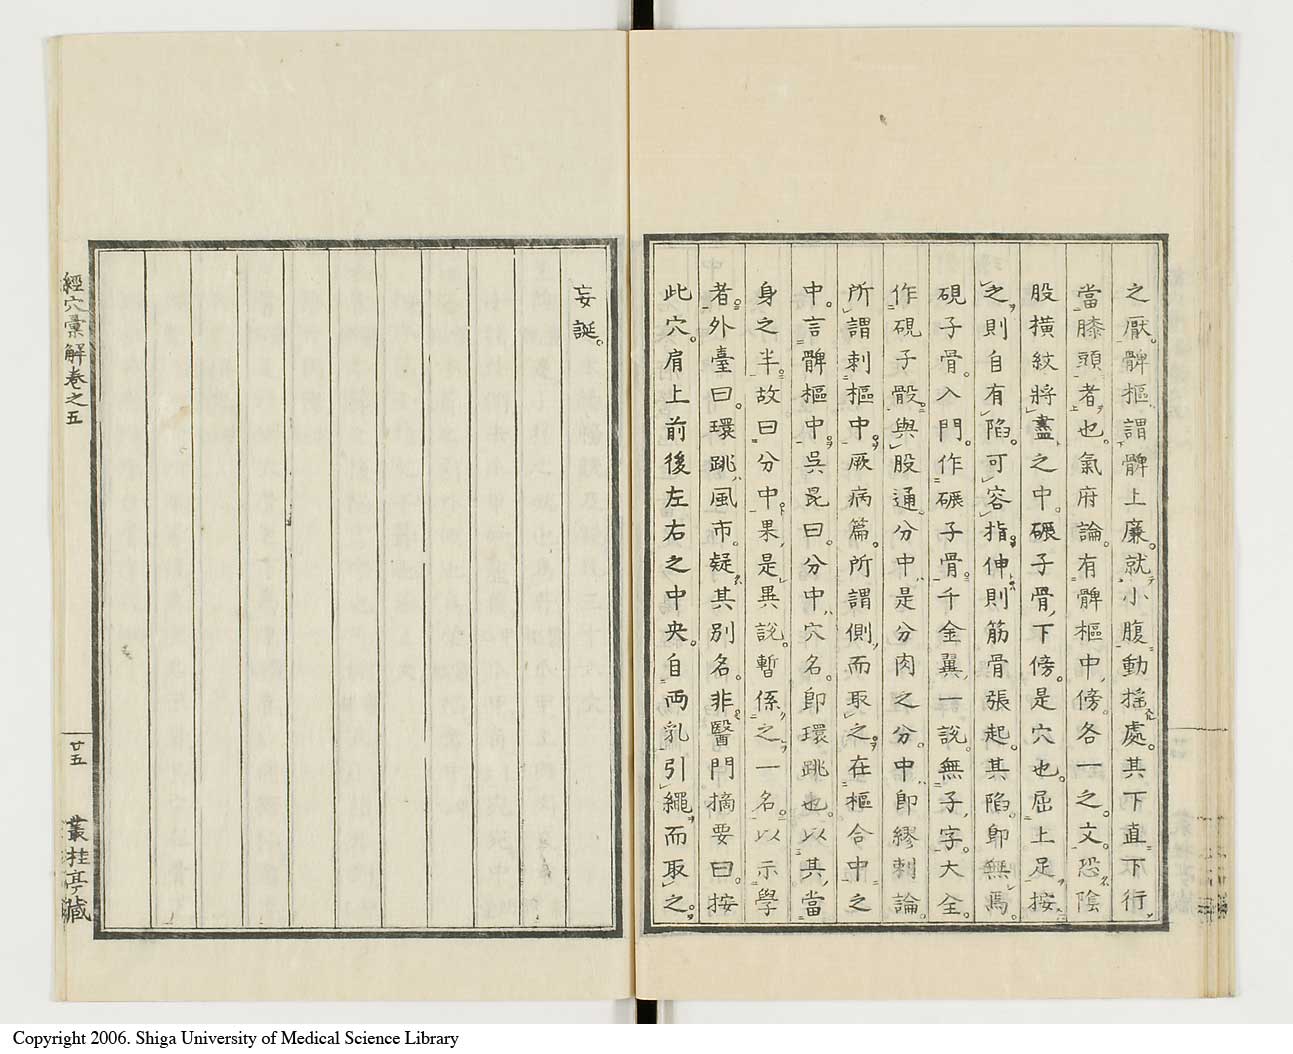 之厭。髀樞謂髀上廉。就小腹動搖處。其下直下行
當膝頭者也。氣府論。有髀樞中傍。各一之文。恐陰
股橫紋將盡之中。碾子骨下傍。是穴也。屈上足按
之則自有陷。可容指。伸則筋骨張起。其陷卽無焉。
硯子骨。入門。作碾子骨。千金翼一說。無子字。大全。
作硯子骰與股通。分中是分肉之分。中卽繆刺論
所謂刺樞中。厥病篇。所謂側而取之。在樞合中之
中。言髀樞中。吳昆曰。分中穴名。卽環跳也。以其當
身之半。故曰分中。果是異說。暫係之一名。以示學
者。外臺曰。環跳風市。疑其別名。非醫門摘要曰。按
此穴。肩上前後左右之中央。自両乳引繩而取之。
妄誕。
經穴彙解卷之五
廿五
叢桂亭藏
Copyright 2006. Shiga University of Medical Science Library